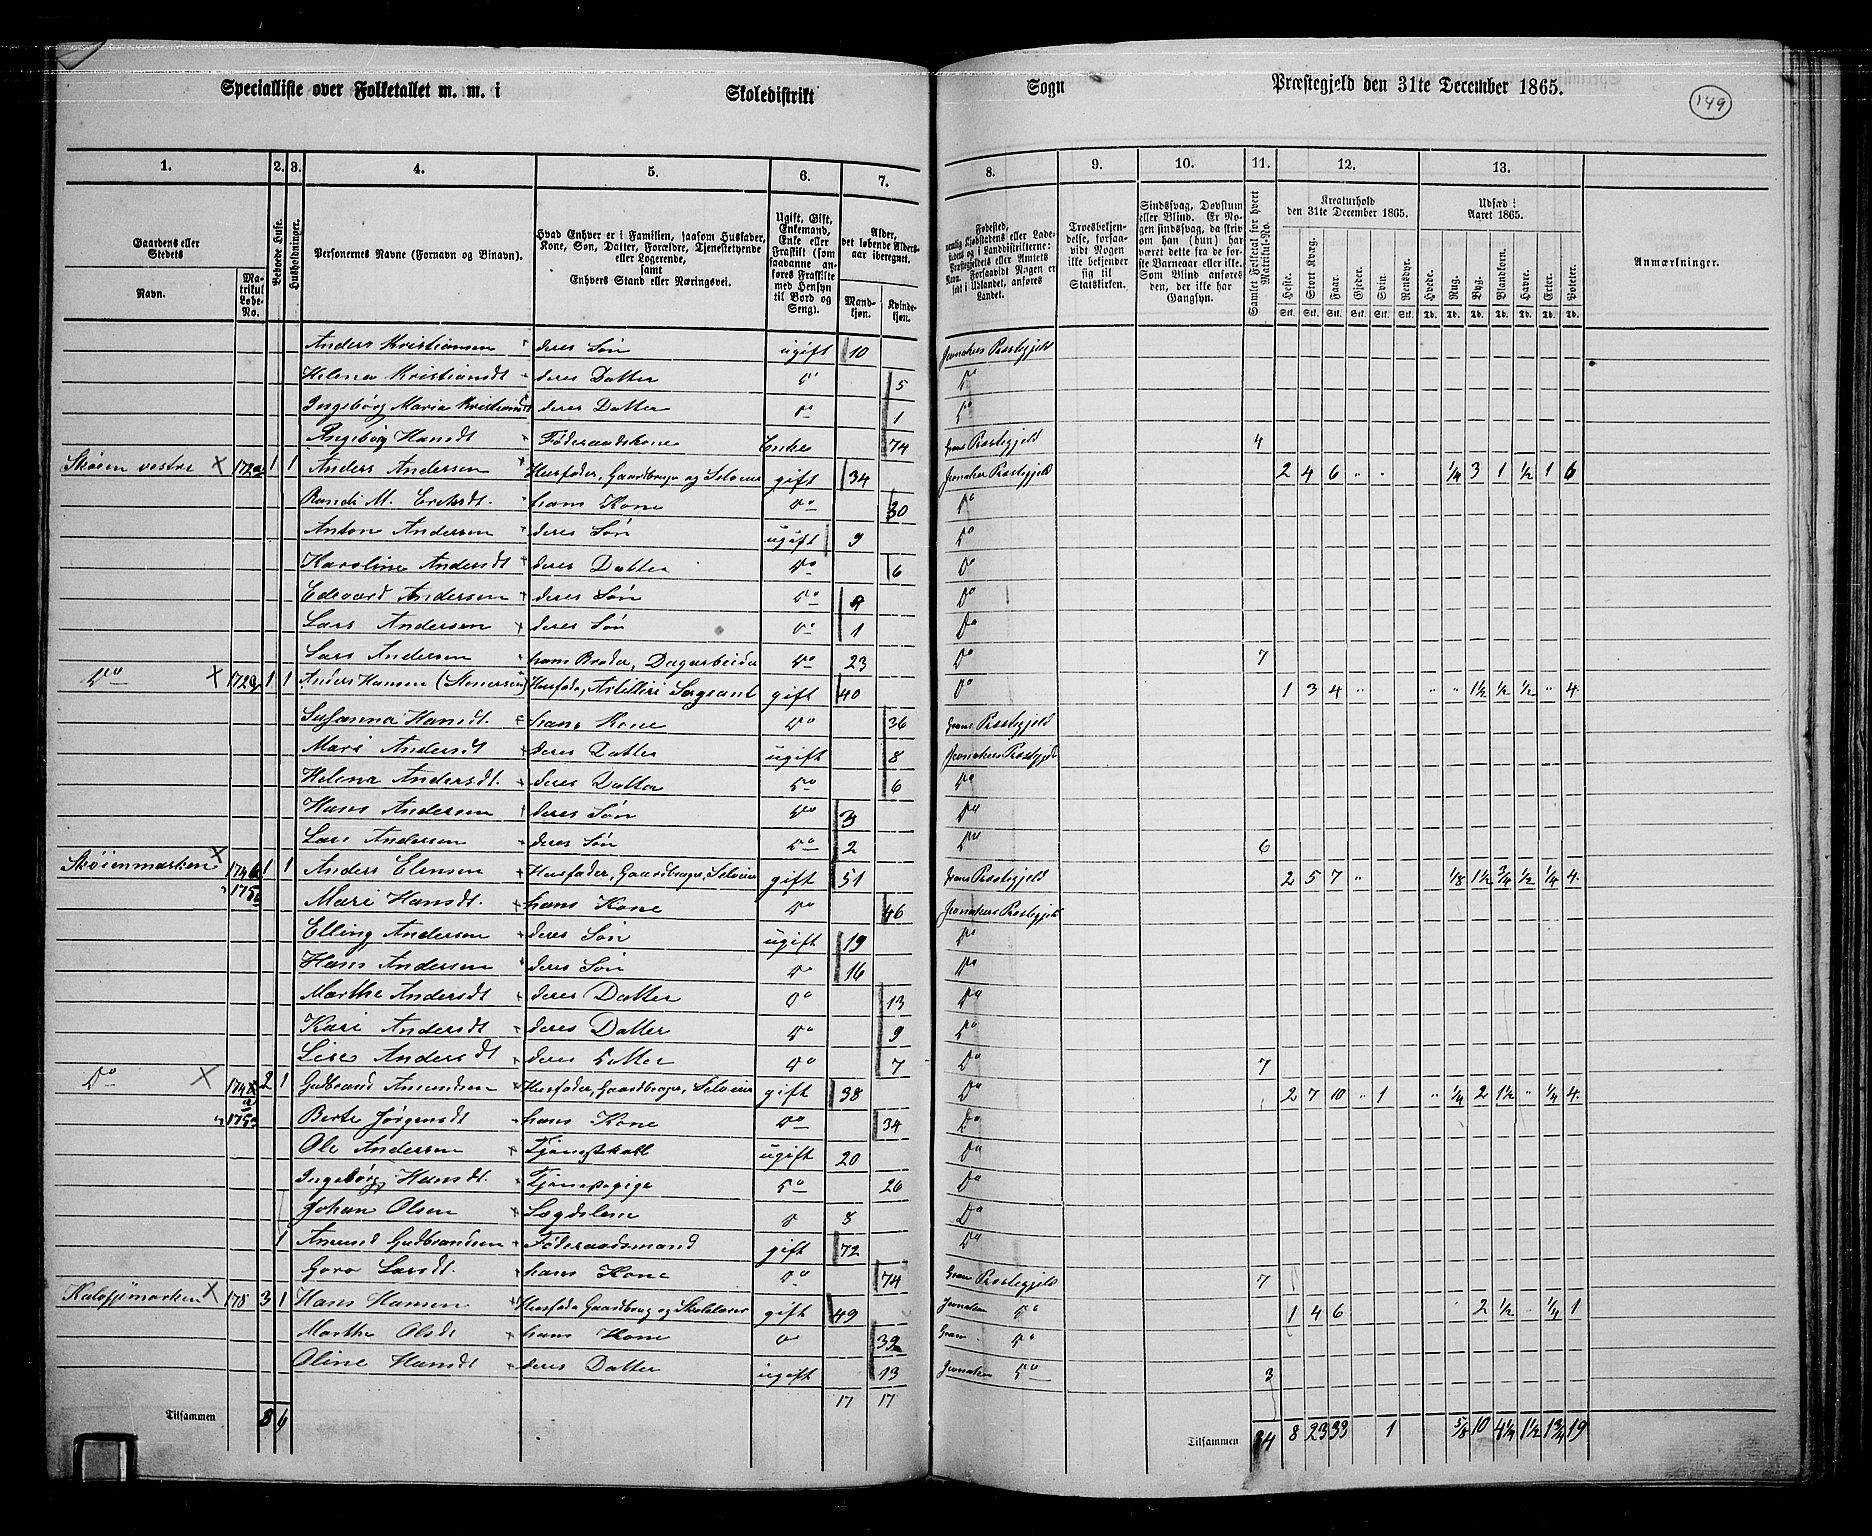 Specialliste over Folketallet m. m. i Skoledistrikt Sogn Præstegjeld den 31te December 1865.
149
1. 2. 3. 4. 5. 6. 7. 8. 9. 10. 11. 12. 13.
Gaardens eller Stedets
Navn.
Matrikul Løbe-No.
Beboede Huse.
Husholdninger.
Personernes Navne (Fornavn og Binavn).
Hvad Enhver er i Familien, saasom Husfader, Kone, Søn, Datter, Forældre, Tjenestetydende eller Logerende,
samt
Enhvers Stand eller Næringsvei.
Ugift, Gift, Enkemand, Enke eller Fraskilt (som saadanne anføres Fraskilte med Hensyn til Bord og Seng).
Alder, det løbende Alders-aar iberegnet.
Mand-kjøn.
Kvinde-kjøn.
Fødested,
Troesbekjendelse, forsaavidt Nogen ikke bekjender sig til Statskirken.
Sindssvag, Døvstum eller Blind. Er Nogen sindssvag, da skriv om han (hun) har været dette fra de første Barneaar eller ikke. Som Blind anføres den, der ikke har Gangsyn.
Samlet Folketal for hvert Matrikul-No.
Kreaturhold den 31te December 1865.
Heste. Stort Kvæg. Faar. Gjeder. Svin. Rensdyr.
Udsæd i Aaret 1865.
Hvede. Rug. Byg. Blandkorn. Havre. Erter. Poteter.
Anmærkninger.
Anders Kristiansen deres Søn ugift 10 Jevnakers Præstegjeld
Helena Kristiansdt deres Datter Do 5 Do
Ingebørg Maria Kristiansdt deres Datter Do 1 Do
Ingebørg Hansdt Føderaadskone Enke 74 Grans Præstegjeld 4
Skøien vestre 172a 1 1 Anders Andersen Husfader, Gaardbruger og Selveier gift 34 Jevnaker Præstegjeld 2 4 6 " " 1/4 3 1 1/2 1 6
Randi M. Eriksdt. hans Kone Do 30 Do
Anton Andersen deres Søn ugift 9 Do
Karoline Andersdt deres Datter Do 6 Do
Edevard Andersen deres Søn Do 4 Do
Lars Andersen deres Søn Do 1 Do
Lars Andersen hans Broder, Dagarbeider Do 23 Do 7
Do 172 1 1 Anders Hansen Husfader, Artilleri Sergeant gift 40 Do 1 3 4 " " " 1 1/2 1/2 1/2 " 4
Susanna Hansdt. hans Kone Do 36 Grans Præstegjeld
Mari Andersdt deres Datter ugift 8 Jevnakers Præstegjeld
Helena Andersdt. deres Datter Do 6 Do
Hans Andersen deres Søn Do 3 Do
Lars Andersen deres Søn Do 2 Do 6
Skøienmarken 174b 1 1 Anders Elensen Husfader, Gaardbruger, Selveier gift 51 Grans Præstegjeld 2 5 7 " 1/8 1 1/2 3/4 1/2 1/4 4
" 175 Mari Hansdt. hans Kone Do 46 Jevnakers Præstegjeld
Elling Andersen deres Søn ugift 19 Do
Hans Andersen deres Søn Do 16 Do
Marthe Andersdt deres Datter Do 13 Do
Kari Andersdt deres Datter Do 9 Do
Lise Andersdt deres Datter Do 7 Do 7
Do 174 a 2 1 Gudbrand Amundsen Husfader, Gaardbruger, Selveier gift 38 Do 2 7 10 " 1 " 1/4 2 1 1/2 " 1/4 4
" 175 Berte Jørgensdt hans Kone Do 34 Do
Ole Andersen Tjenestekarl ugift 20 Do
Ingebørg Hansdt. Tjenestepige Do 26 Do
Johan Olsen Lægdslem Do 8 Do
1 Amund Gudbrandsen Føderaadsmand gift 72 Do
Goro Larsdt. hans Kone Do 74 Gran Præstegjeld 7
178 3 1 Hans Hansen Husfader Gaardbrug og Skolelærer gift 49 Jevnaker Do 1 4 6 " 2 1/2 " 1/4 1
Marthe Olsdt hans Kone Do 39 Gran Do
Oline Hansdt deres Datter ugift 13 Jevnaker Do 3
17 17
Tilsammen 8 6
Tilsammen 34 8 23 33 1 5/8 10 4 1/4 1 1/2 1 3/4 19